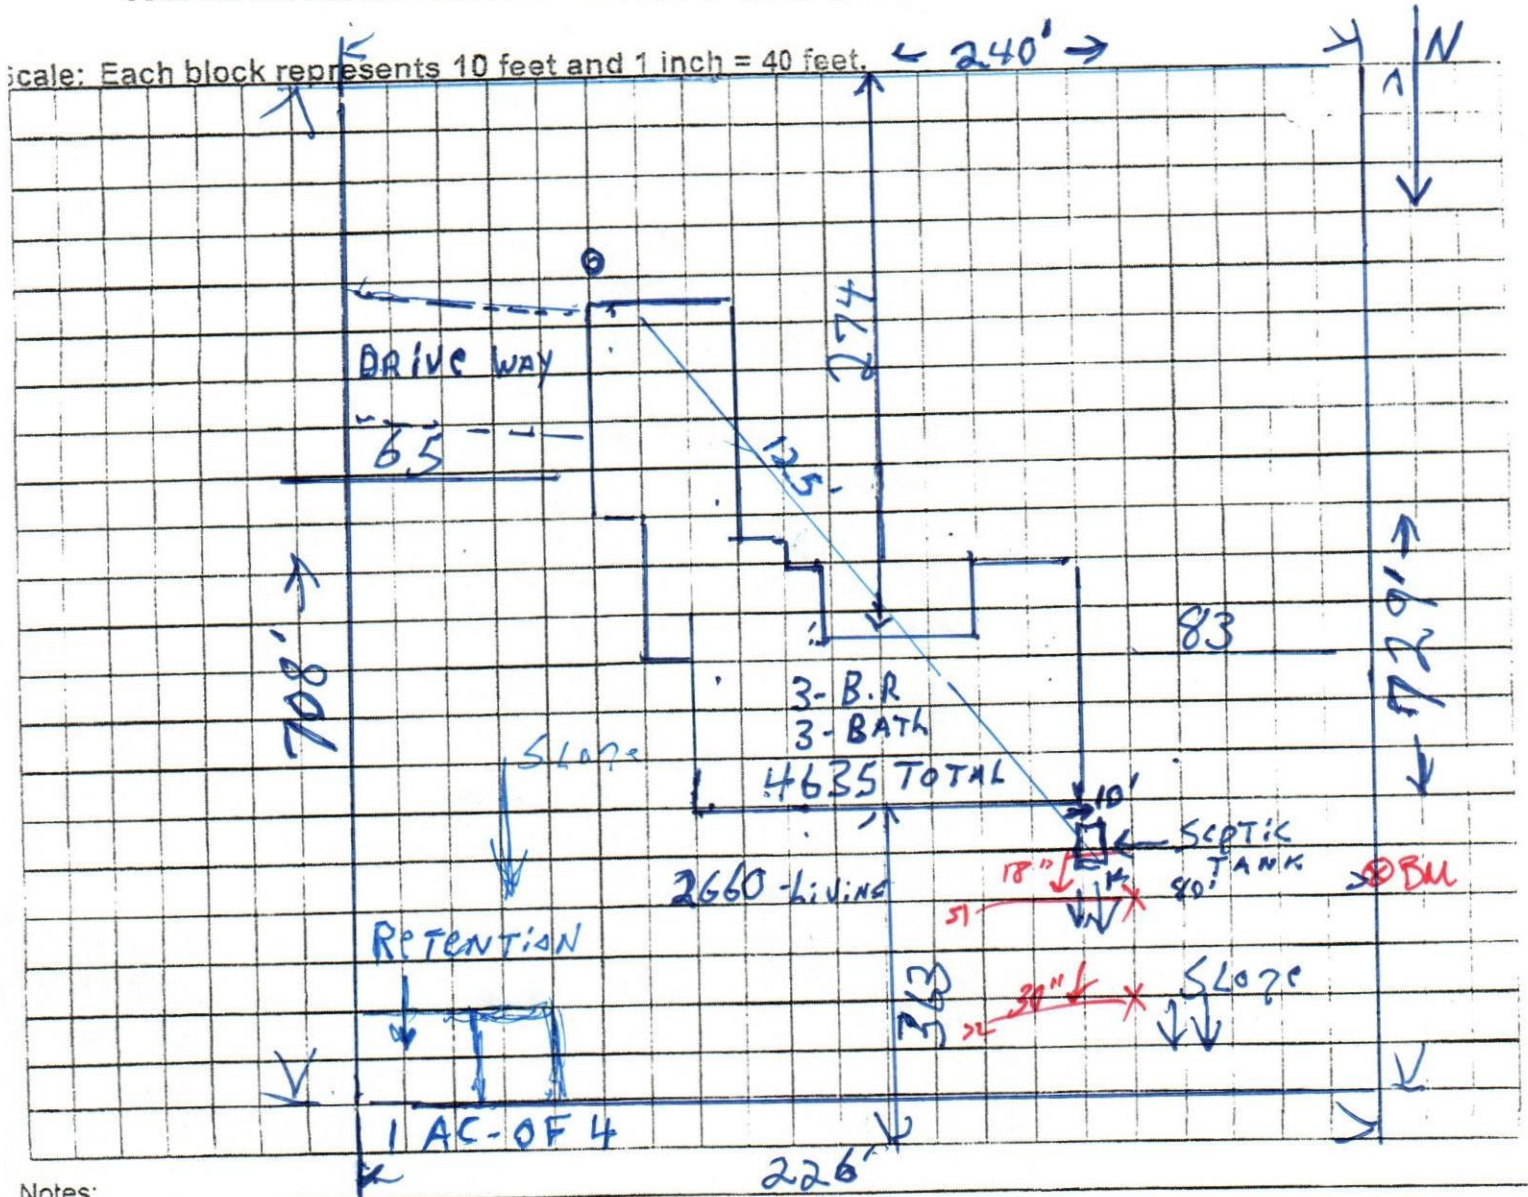 Scale: Each block represents 10 feet and 1 inch = 40 feet.
240'
N
274
DRIVE WAY
65
125'
708'
729'
83
3-B.R
3-BATH
4635 TOTAL
Slope
10'
SEPTIC
TANK
80'
BM
18"
2660-Living
S1
RETENTION
363
30"
Slope
S2
1 AC-OF 4
226'
Notes: